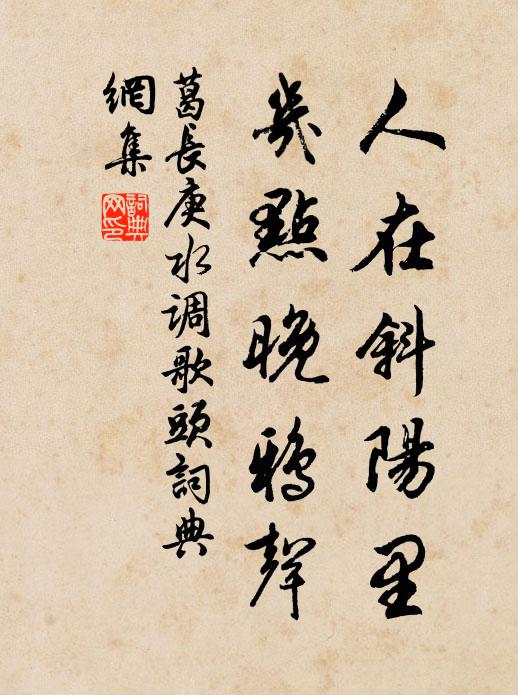 人在斜陽里
幾點晚鴉聲
葛長庚水调歌頭詞典
網集
詞典
网印